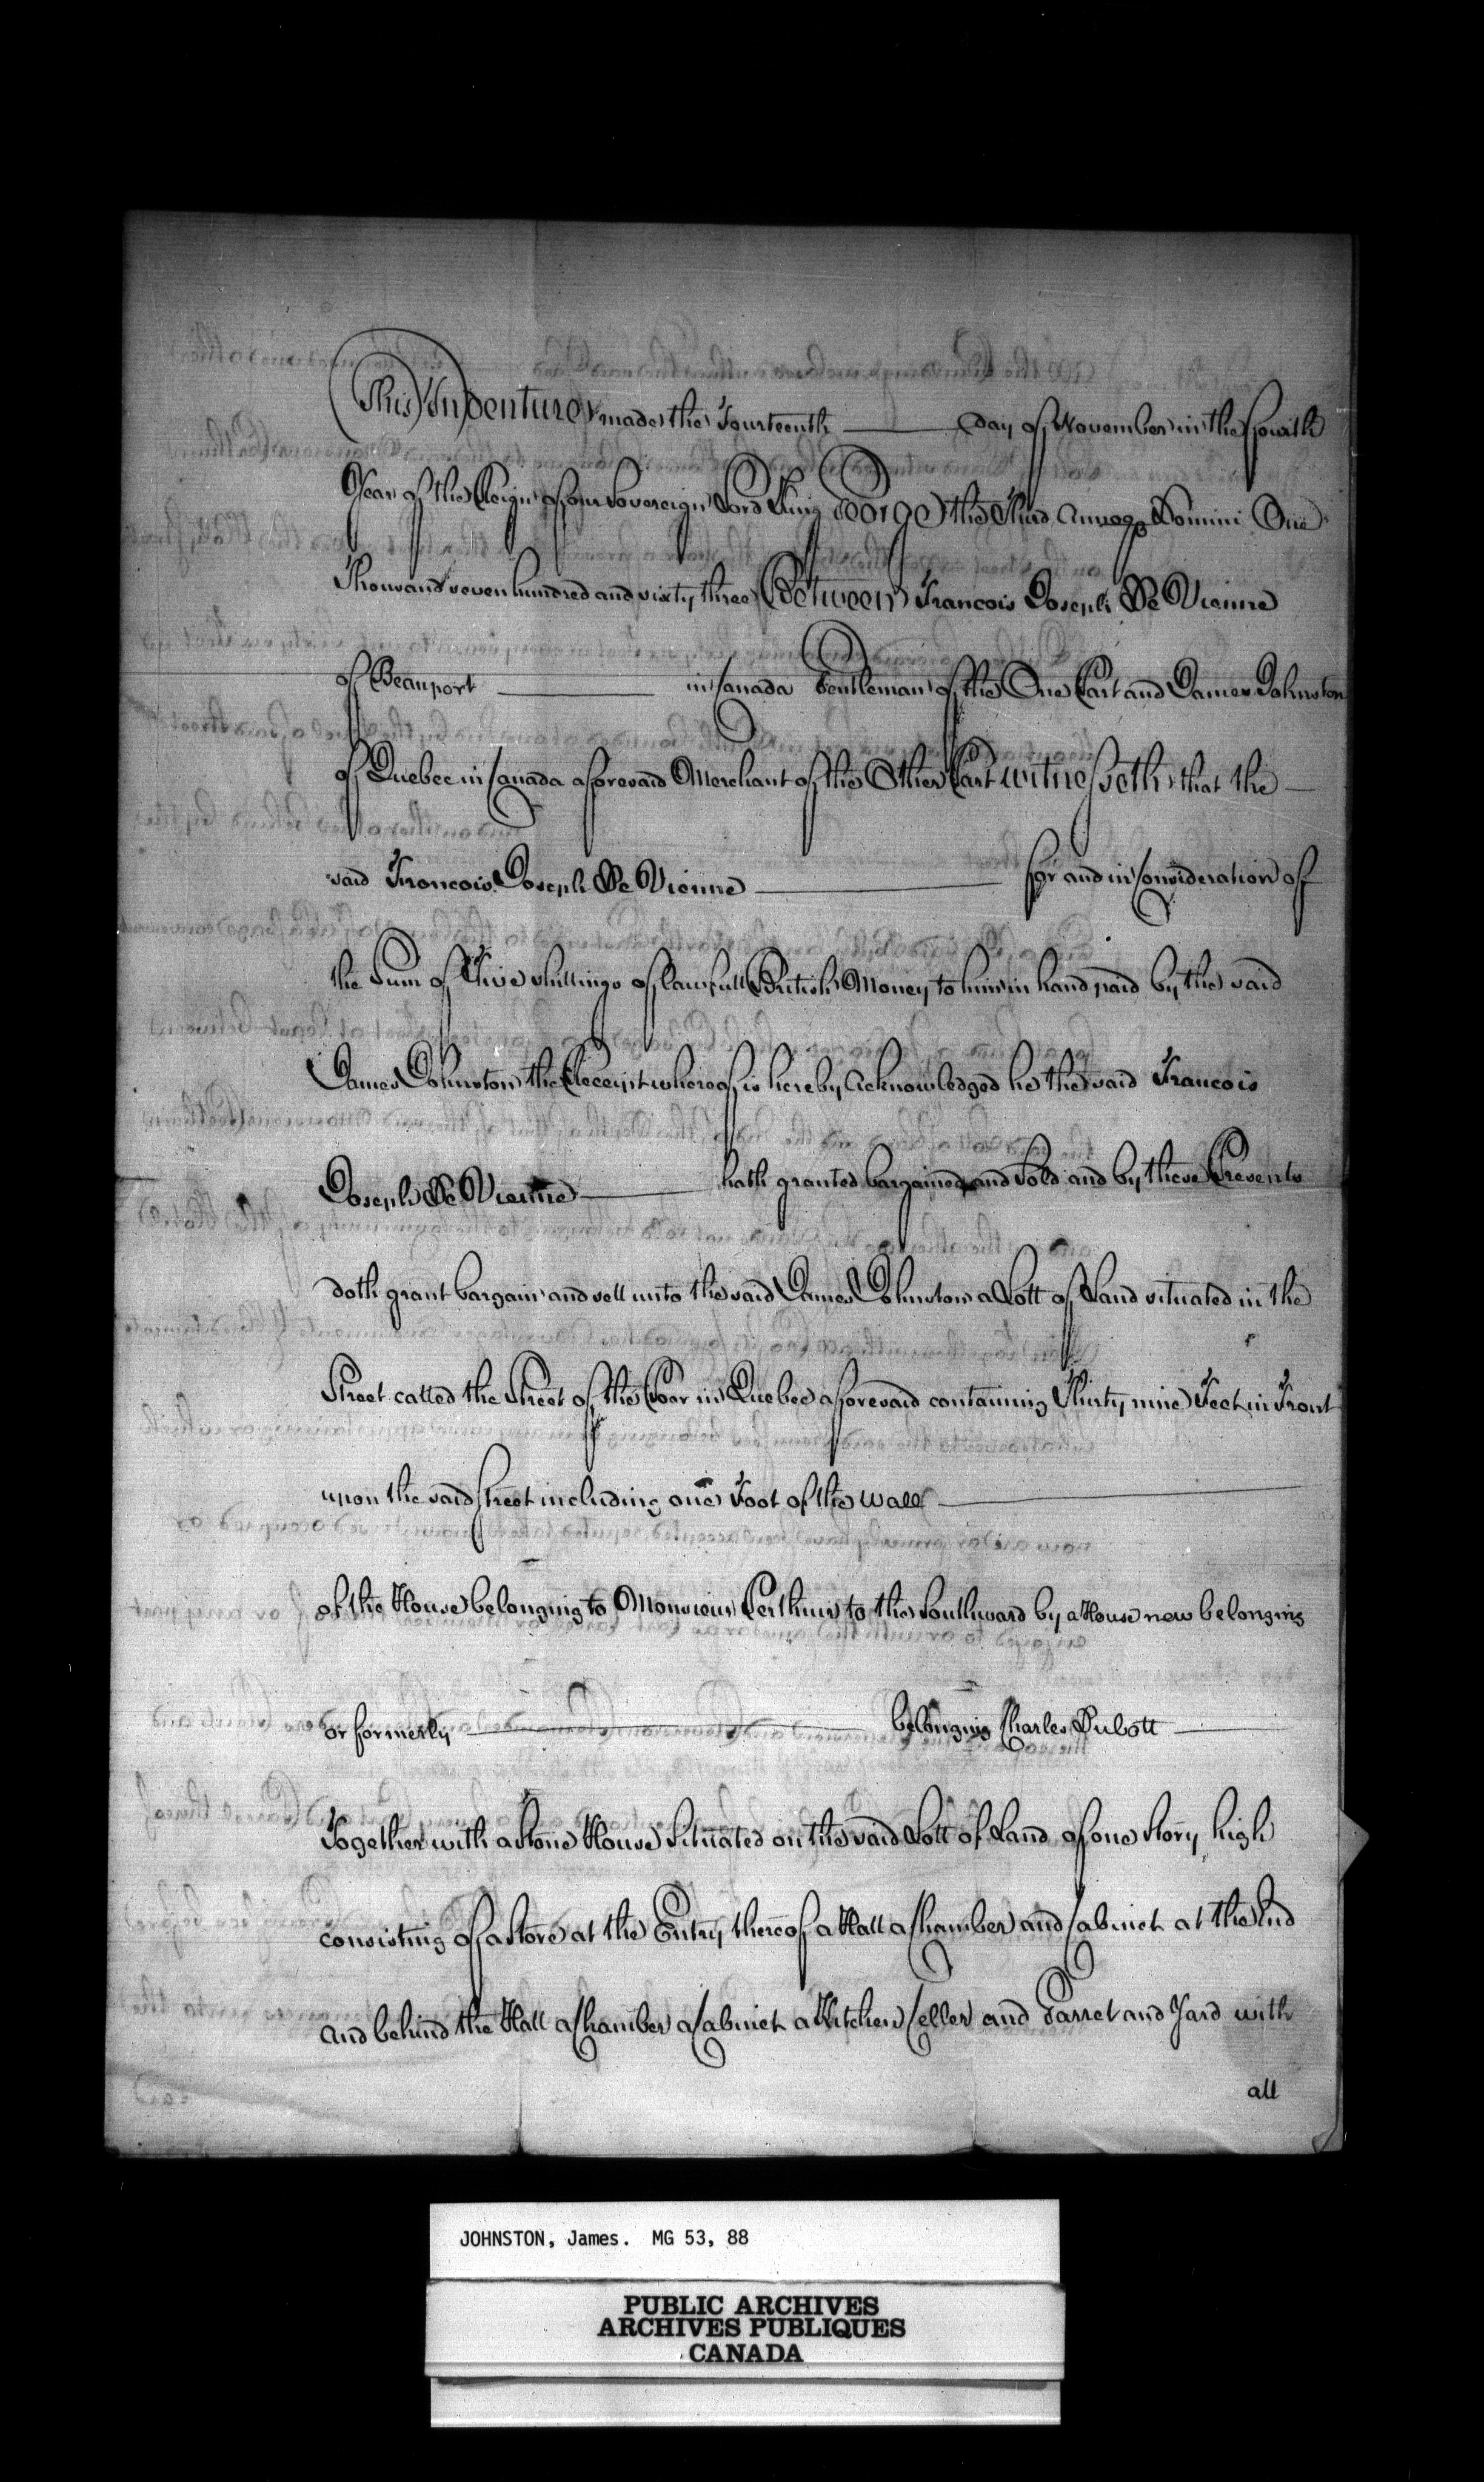 This Indenture made the Fourteenth day of November in the fourth
Year of the Reign of our Sovereign Lord King George the Third Annoq Domini One
Thousand seven hundred and sixty three Between Francois Joseph De Vienne
of Beauport in Canada Gentleman of the One Part and James Johnston
of Quebec in Canada aforesaid Merchant of the Other Part witnesseth that the
said Francois Joseph De Vienne for and in Consideration of
the Sum of Five shillings of lawfull British Money to him in hand paid by the said
James Johnston the Receipt whereof is hereby Acknowledged he the said Francois
Joseph De Vienne hath granted bargained and Sold and by these Presents
doth grant bargain and sell unto the said James Johnston a Lott of Land situated in the
Street called the Street of the Poor in Quebec aforesaid containing Thirty nine Feet in Front
upon the said street including one Foot of the wall
of the House belonging to Monsieur Perthuis to the Southward by a House now belonging
or formerly belonging Charles Dubott
Together with a Stone House Situated on the said Lott of Land of one Story high
consisting of a Store at the Entry thereof a Hall a Chamber and Cabinet at the End
and behind the Hall a Chamber a Cabinet a Kitchen Celler and Garret and Yard with
all
JOHNSTON, James. MG 53, 88
PUBLIC ARCHIVES
ARCHIVES PUBLIQUES
CANADA